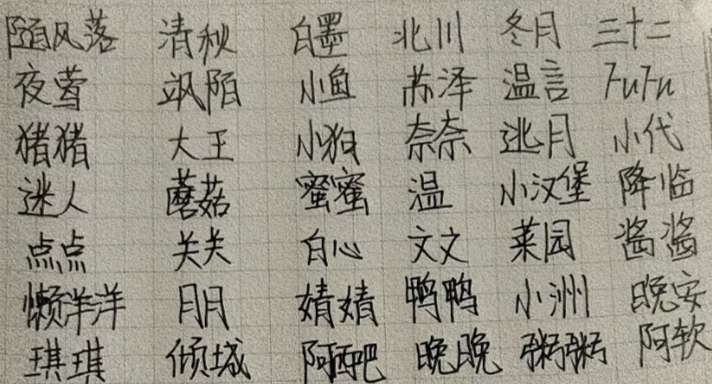 随风落 清秋 白墨 北川 冬月 三十二
夜莺 飒陌 小鱼 苏泽 温言 FuFu
猪猪 大王 小狗 奈奈 逃月 小代
迷人 蘑菇 蜜蜜 温 小汉堡 降临
点点 关关 白心 文文 菜园 酱酱
懒洋洋 月月 婧婧 鸭鸭 小洲 晚安
琪琪 倾城 阿西吧 晚晚 粥粥 阿软